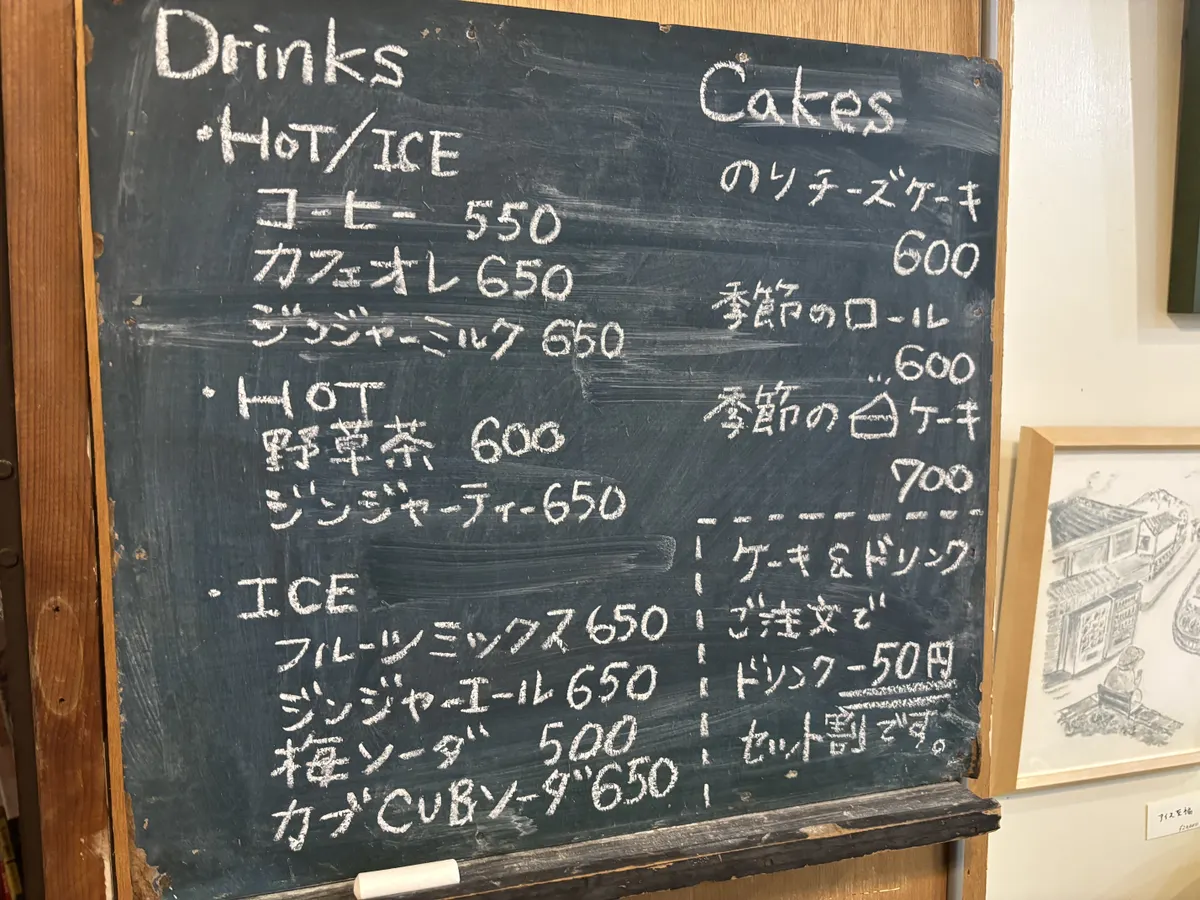 Drinks
・HOT/ICE
コーヒー 550
カフェオレ 650
ジンジャーミルク 650
・HOT
野草茶 600
ジンジャーティー 650
・ICE
フルーツミックス 650
ジンジャーエール 650
梅ソーダ 500
カブCUBソーダ 650
Cakes
のりチーズケーキ
600
季節のロール
600
季節のケーキ
700
ケーキ&ドリンク
ご注文で
ドリンク -50円
セット割です。